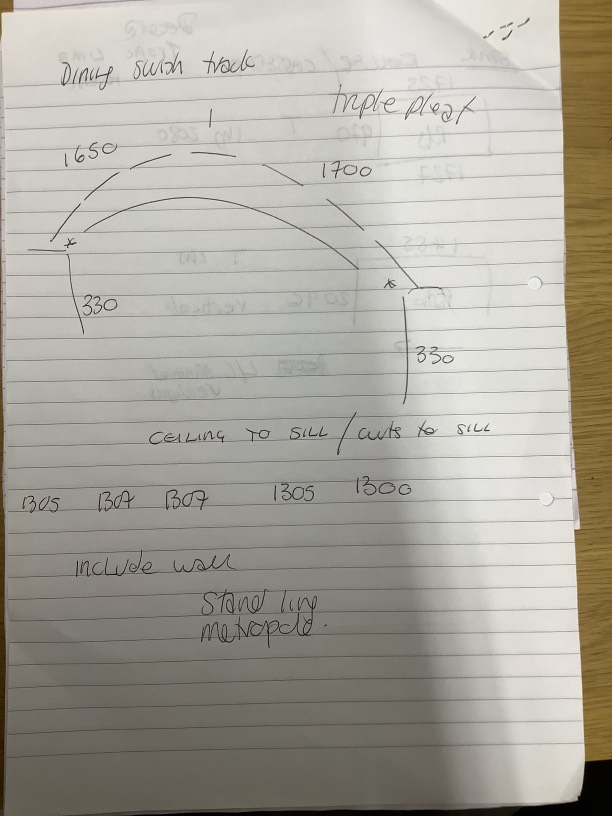 Dining swish track
triple pleat
1650
1700
330
330
CEILING TO SILL / cuts to SILL
1305 1307 1307 1305 1300
include wall
Stand